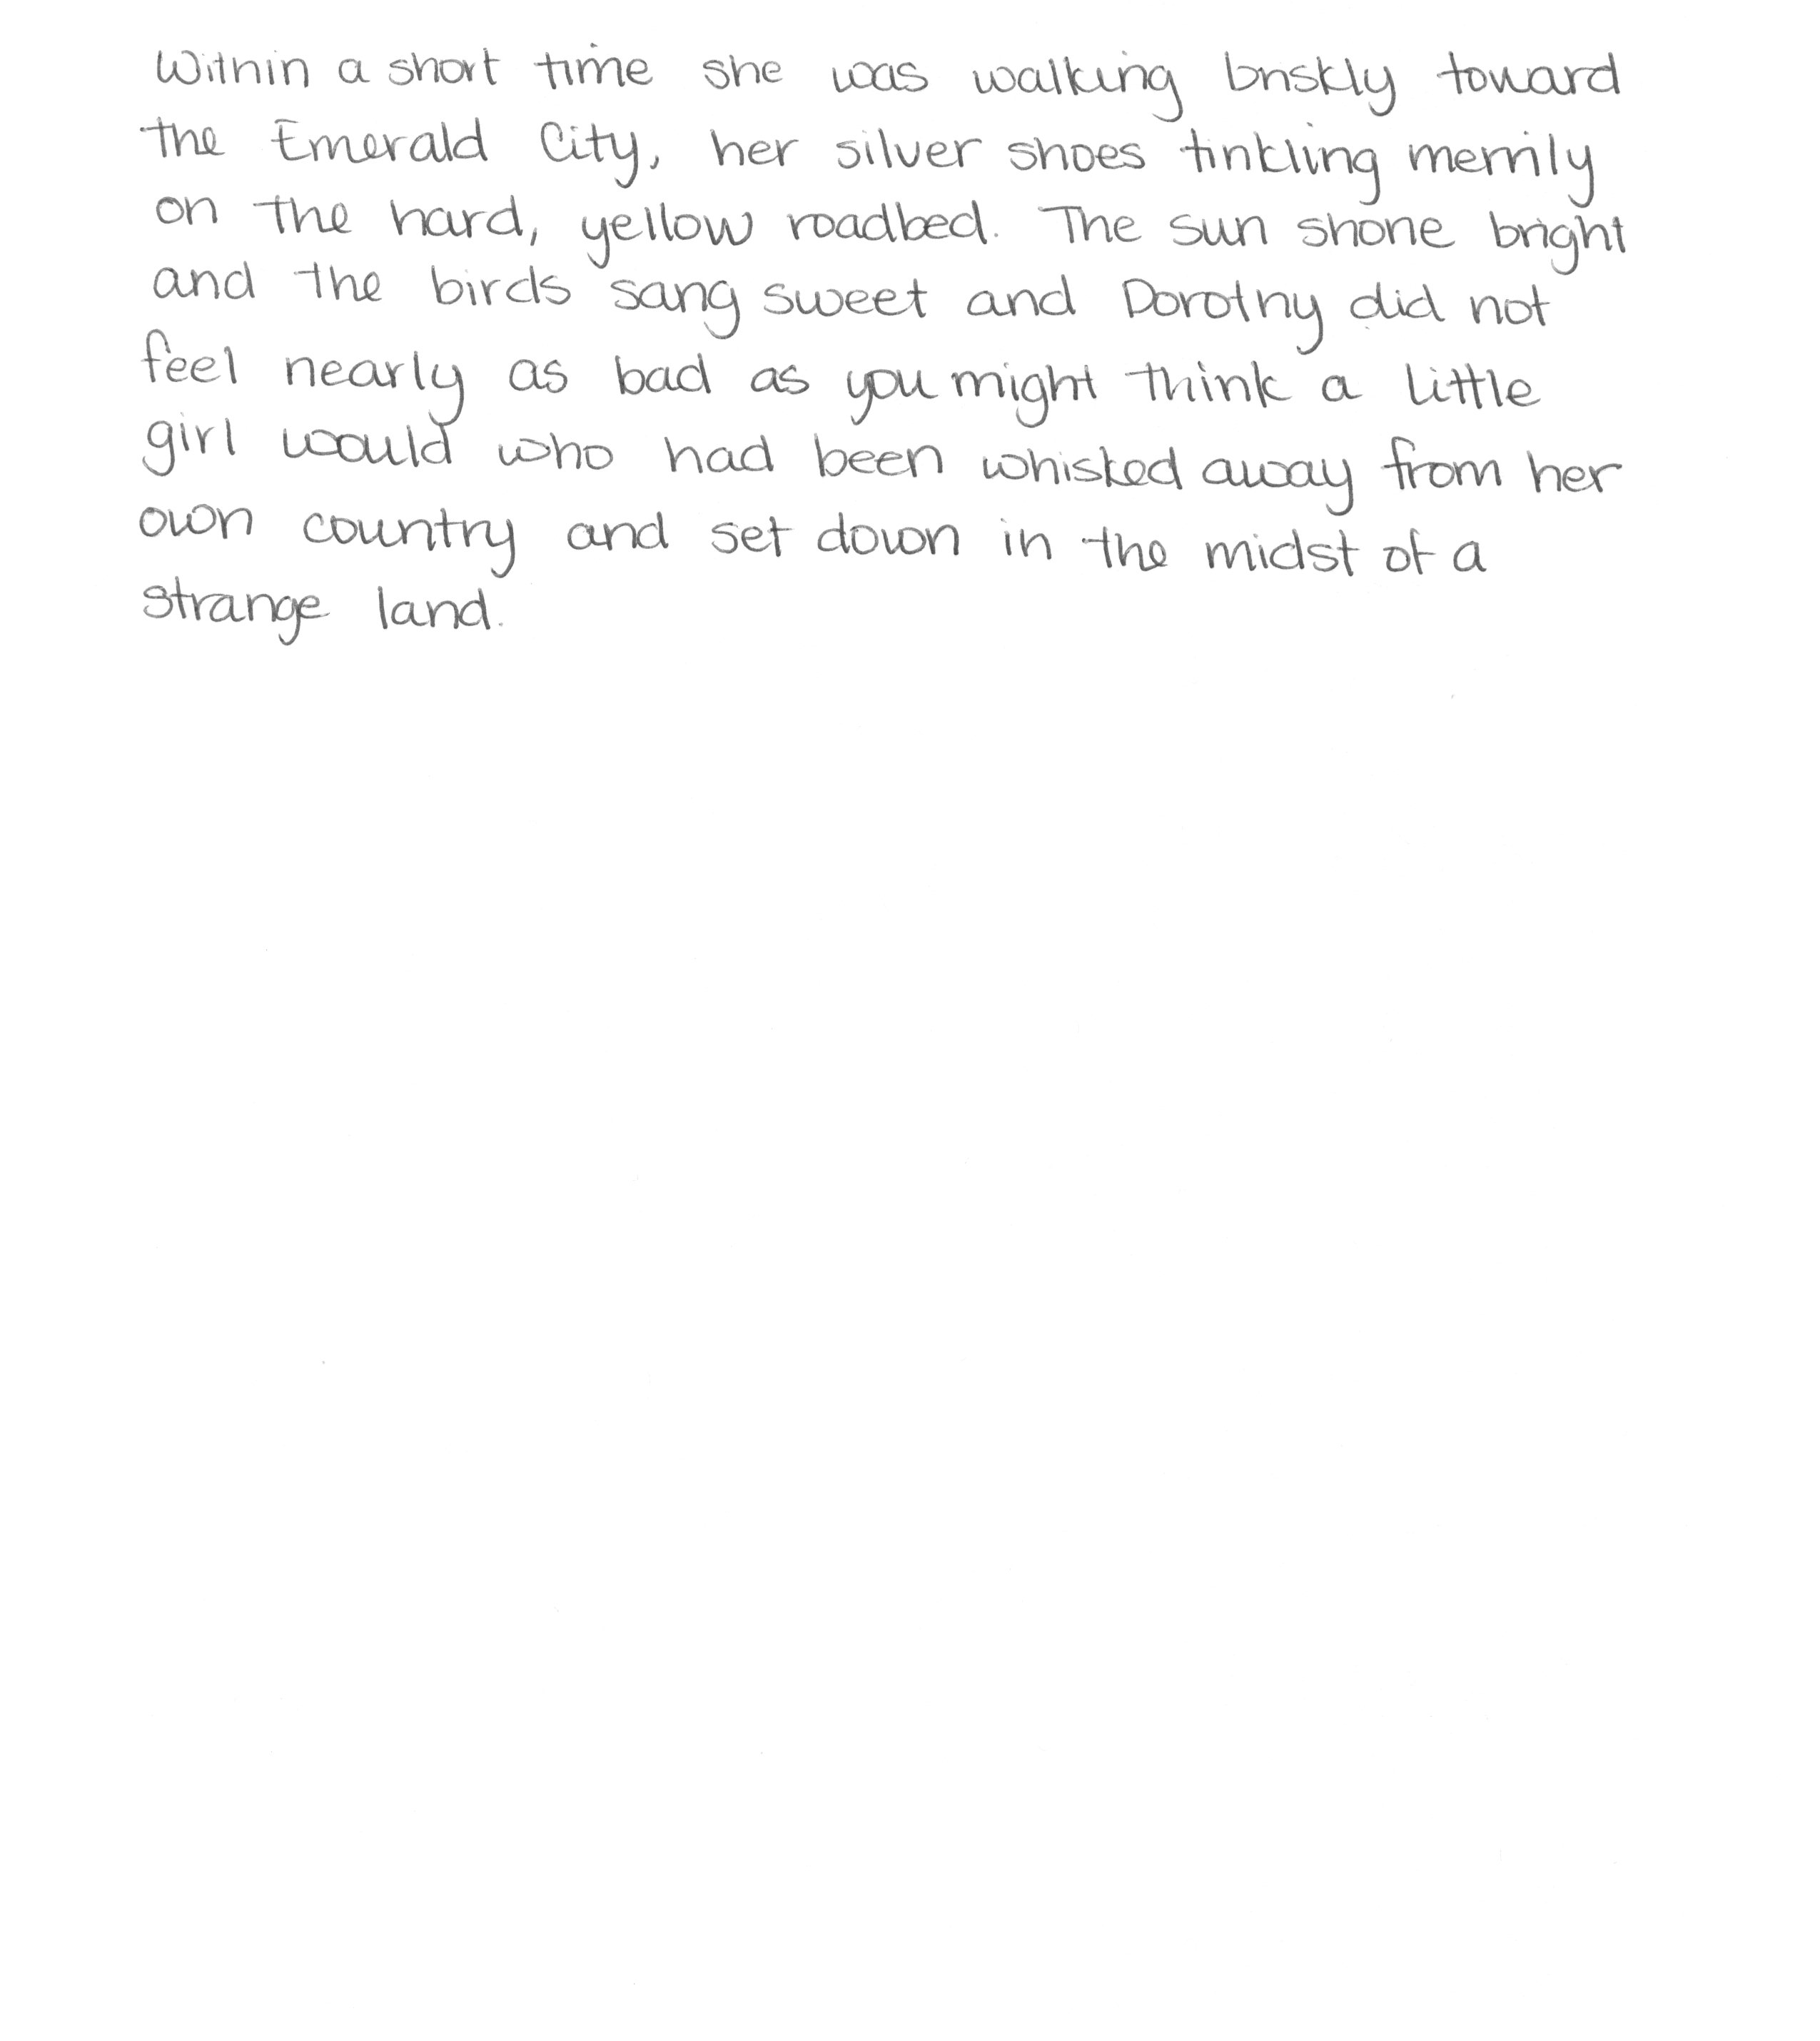 Within a short time she was walking briskly toward
the Emerald City, her silver shoes tinkling merrily
on the hard, yellow roadbed. The sun shone bright
and the birds sang sweet and Dorothy did not
feel nearly as bad as you might think a little
girl would who had been whisked away from her
own country and set down in the midst of a
strange land.